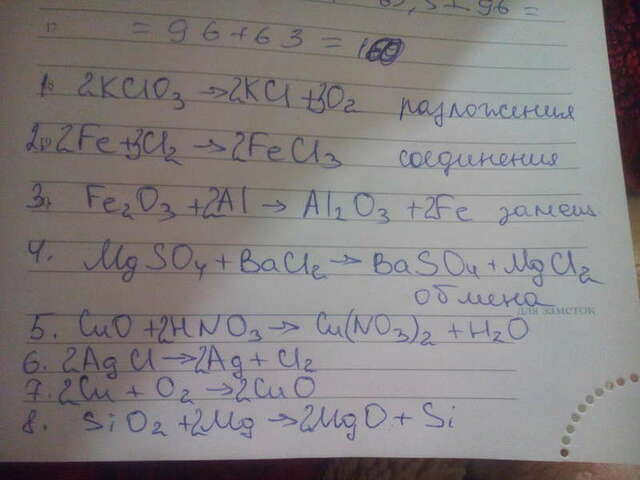 63,5+96=
= 96+63 = 160
1. 2KClO₃ → 2KCl + 3O₂ разложения
2. 2Fe+3Cl₂ → 2FeCl₃ соединения
3. Fe₂O₃ + 2Al → Al₂O₃ + 2Fe замещ
4. MgSO₄ + BaCl₂ → BaSO₄ + MgCl₂
обмена
для заметок
5. CuO + 2HNO₃ → Cu(NO₃)₂ + H₂O
6. 2AgCl → 2Ag + Cl₂
7. 2Cu + O₂ → 2CuO
8. SiO₂ + 2Mg → 2MgO + Si